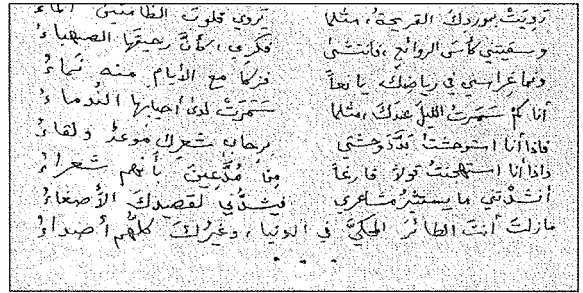 رَوِيَتْ بموردكَ القريحةُ، مثلما تروي قلوبَ الظامئينَ الماءُ
وسقيتني كأسَ الروائعِ، فانتشى فكري، كأنَّ رحيقَها الصهباءُ
ونما غراسي في رياضك يانعاً فزكا مع الأيامِ منه نَماءُ
أنا كم سَمرتُ الليلَ عندكَ، مثلما سَمَرَتْ لدى أحبابِها النُّدماءُ
فإذا أنا استوحشتُ بَدَّدَ وحشتي بِرحابِ شعرِكَ موعدٌ ولقاءُ
وإذا أنا استهجنتُ قولاً فارغاً مِن مُدَّعينَ بأنهم شعراءُ
أنشدْتني ما يستثيرُ مشاعري فيشدُّني لقصيدكَ الأصغاءُ
مازلتَ أنتَ الطائرُ المحكيَّ في الدنيا، وغيرُكَ كلهُم أصداءُ